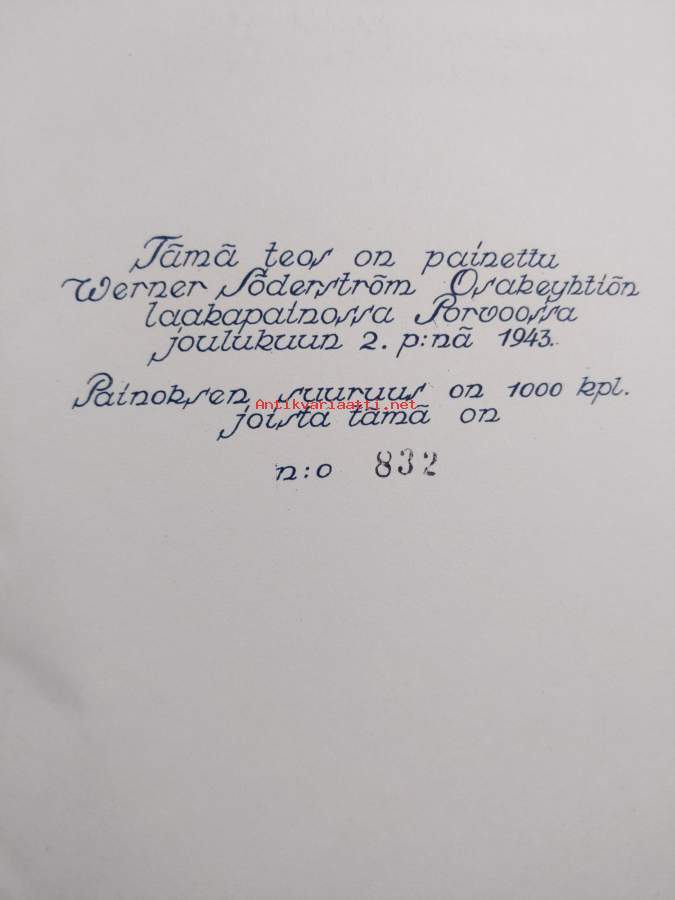 Tämä teos on painettu
Werner Söderström Osakeyhtiön
laakapainossa Porvoossa
joulukuun 2. p:nä 1943.
Painoksen suuruus on 1000 kpl.
Antikvariaatti.net
joista tämä on
n:o 832